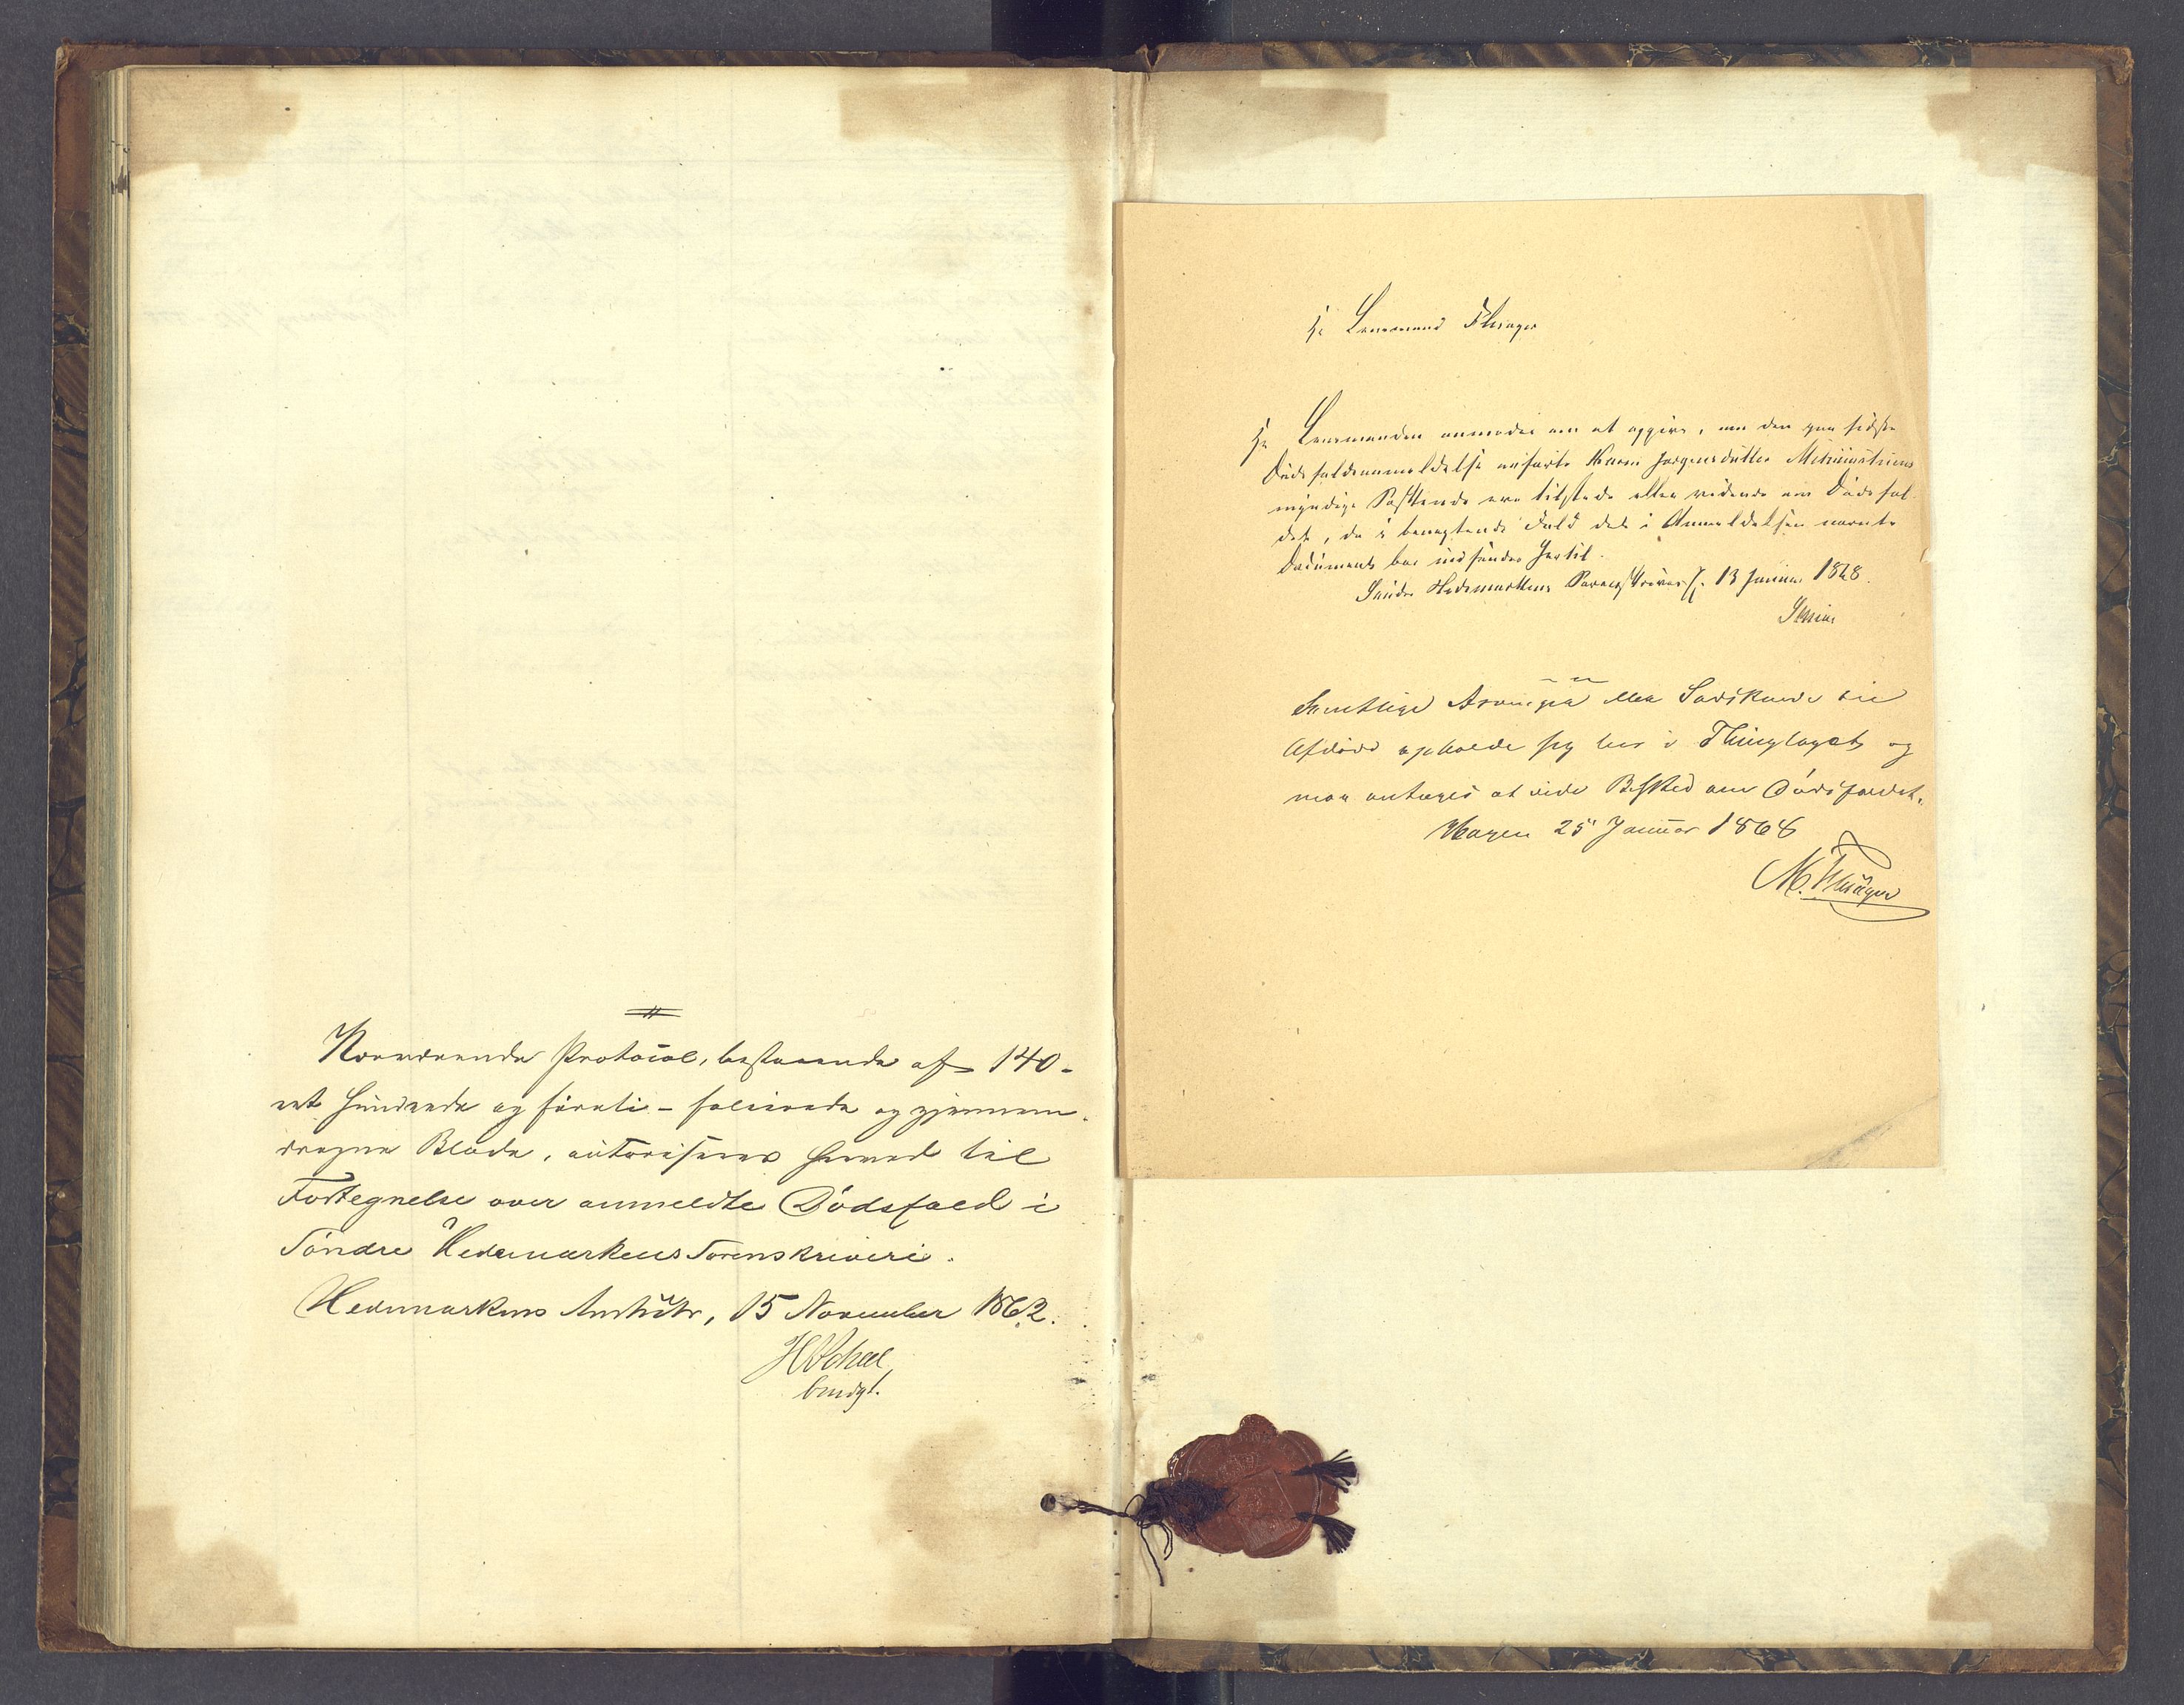 Nærværende Protocol, bestaaende af 140 -
et hundrede og försti - folierede og gjennem-
dragne Blade, autoriseres herved til
Fortegnelse over anmeldte Dödsfald i
Söndre Hedemarkens Sorenskriveri.
Hedemarkens Amt, 15 November 1862.
H Schæl
bmdgt.
Hr Lensmand Thinger
Hr Lensmanden anmodes om at opgive, om den paa sidste
Dødsfaldsanmeldelse anførte Karen Jørgensdatter
myndige ere tilstede eller vidende om Dødsfal-
det, da i benægtende Fald det i Anmeldelsen nævnte
Document bør indsendes hertil.
Søndre Hedemarkens 13 Januar 1868.
Samtlige Arvinger eller Sødskende til
Afdøde opholde sig her i Thinglaget og
maa antages at vide Besked om Dødsfaldet.
Hagen 25 Januar 1868
M. Thinger